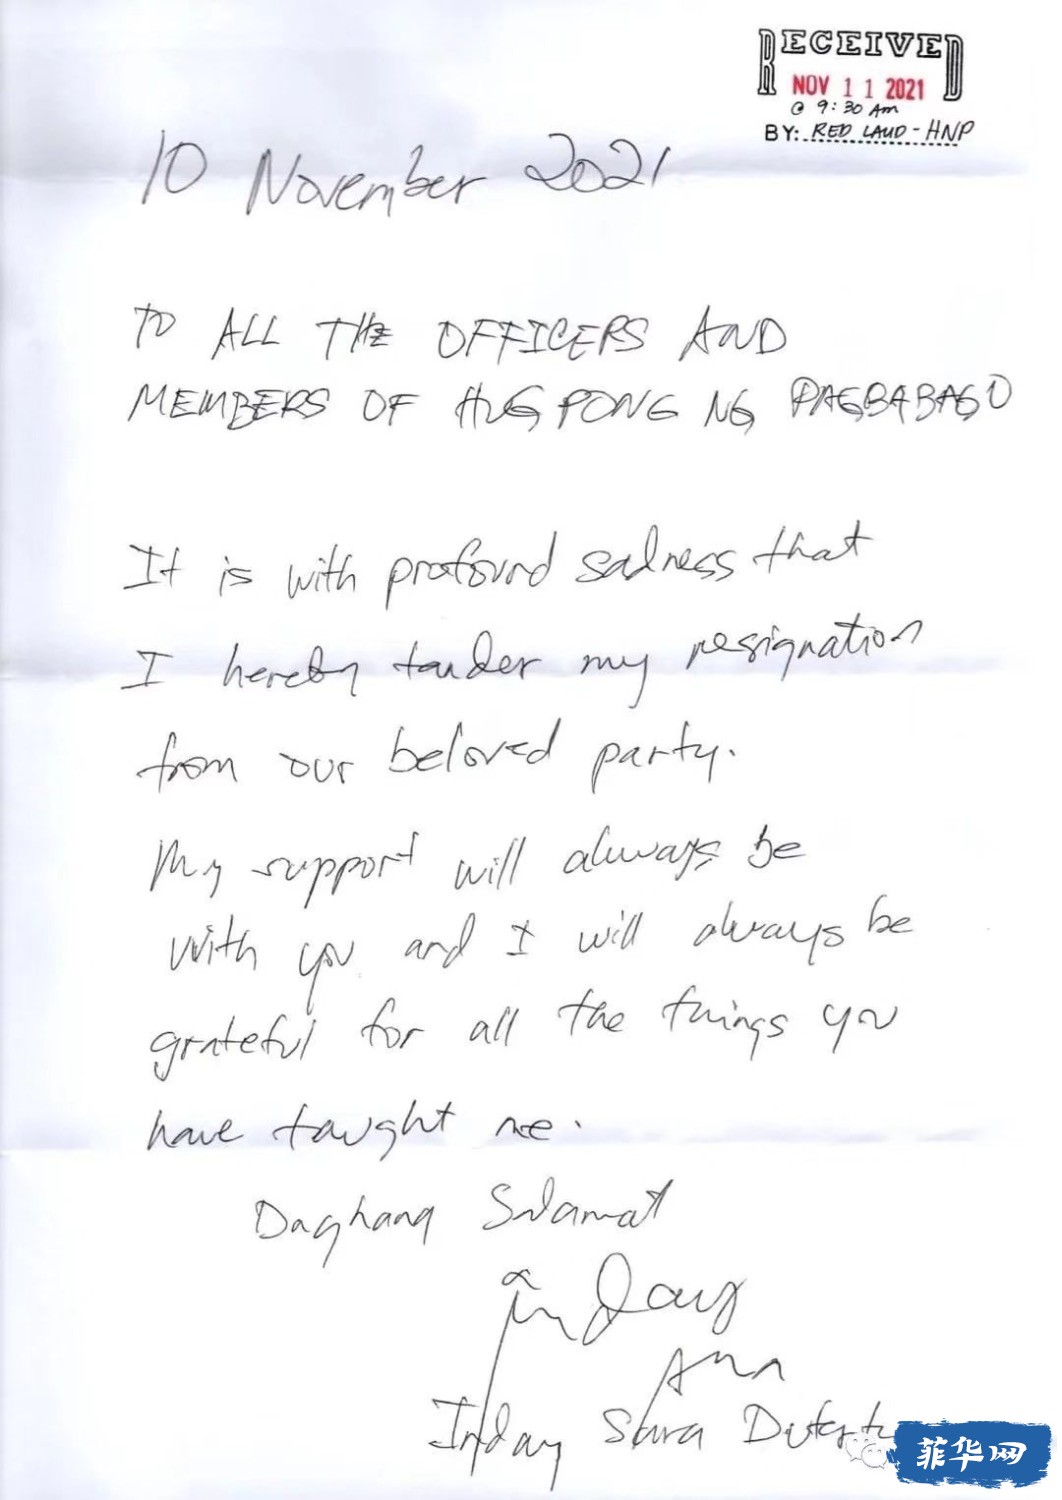 RECEIVED
NOV 11 2021
@ 9:30 Am
BY: RED LAUD - HNP
10 November 2021
TO ALL THE OFFICERS AND
MEMBERS OF HUGPONG NG PAGBABAGO
It is with profound sadness that
I hereby tender my resignation
from our beloved party.
My support will always be
with you and I will always be
grateful for all the things you
have taught me.
Daghang Salamat
Inday
Inday Sara Duterte
菲华网